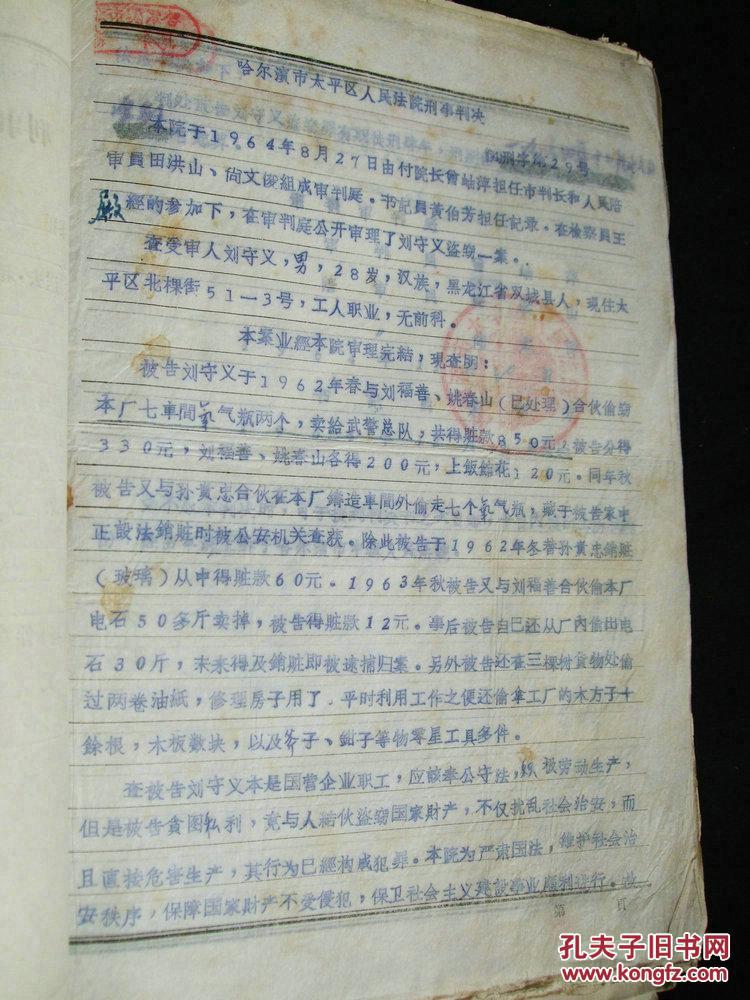 哈尔滨市太平区人民法院刑事判决
刑字第29号
本院于1964年8月27日由付院长曾岫萍担任市判长和人民陪
审员田洪山、尙文俊組成审判庭。书記員黃伯芳担任記录。在檢察員王
殿經的参加下，在审判庭公开审理了刘守义盜窃一案。
查受审人刘守义，男，28岁，汉族，黑龙江省双城县人，現住太
平区北棵街51—3号，工人职业，无前科。
本案业經本院审理完結，現查明：
被告刘守义于1962年春与刘福善、姚春山（已处理）合伙偷窃
本厂七車間氧气瓶两个，卖給武警总队，共得赃款850元，被告分得
330元，刘福善、姚春山各得200元，上飯館花120元。同年秋
被告又与孙黃忠合伙在本厂鑄造車間外偷走七个氧气瓶，藏于被告家中
正設法銷赃时被公安机关查获。除此被告于1962年冬替孙黃忠銷赃
（玻璃）从中得赃款60元。1963年秋被告又与刘福善合伙偷本厂
电石50多斤卖掉，被告得赃款12元。事后被告自已还从厂內偷出电
石30斤，未来得及銷赃即被逮捕归案。另外被告还在三棵树貨物处偷
过两卷油紙，修理房子用了。平时利用工作之便还偷拿工厂的木方子十
餘根，木板数块，以及斧子、鉗子等物零星工具多件。
查被告刘守义本是国营企业职工，应該奉公守法，积极劳动生产，
但是被告貪图私利，竟与人結伙盜窃国家財产，不仅扰乱社会治安，而
且直接危害生产，其行为已經构成犯罪。本院为严肃国法，維护社会治
安秩序，保障国家財产不受侵犯，保卫社会主义建設事业順利进行。故
第 頁
孔夫子旧书网
www.kongfz.com